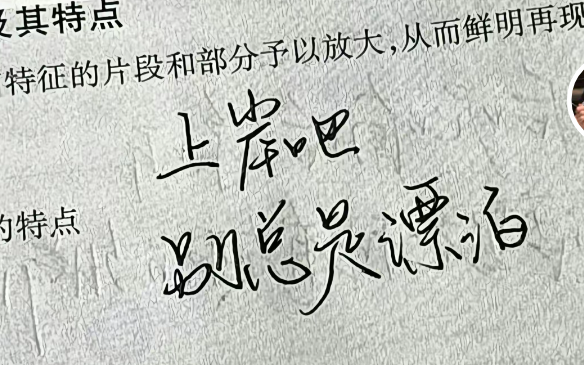 及其特点
特征的片段和部分予以放大,从而鲜明再现
上岸吧
的特点
别总是漂泊